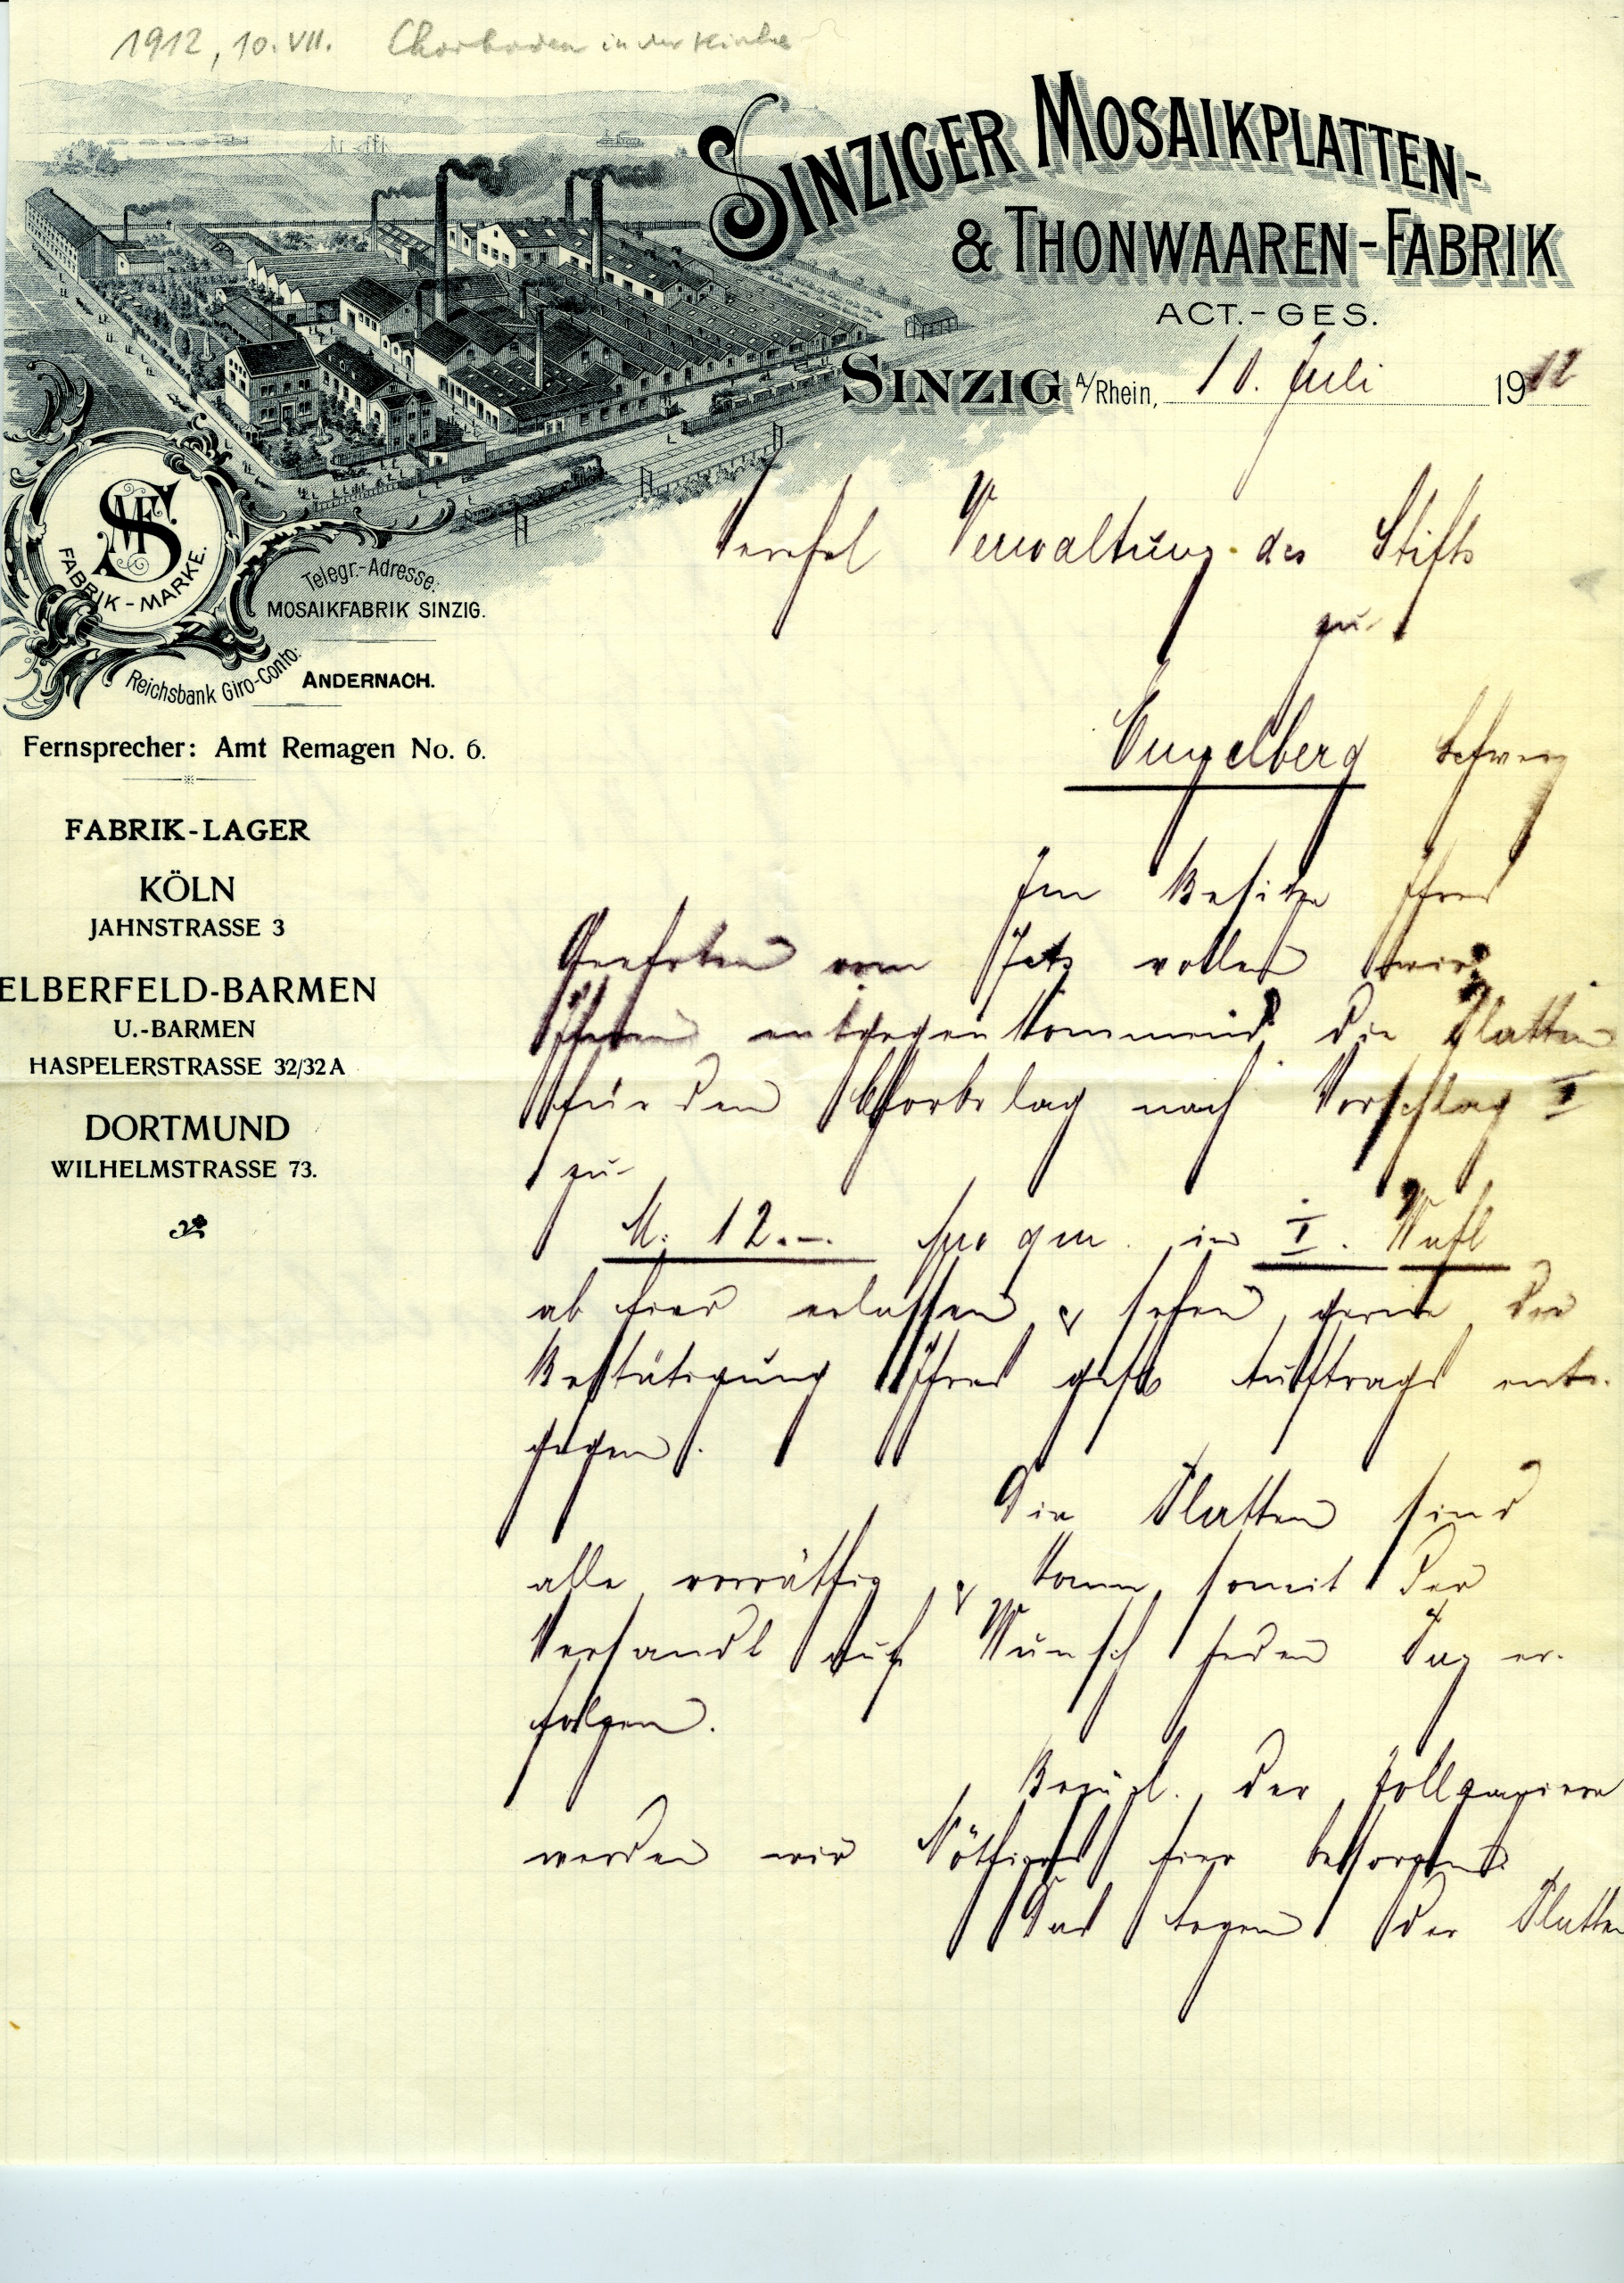 1912, 10.VII. Chorboden in der Kirche
SINZIGER MOSAIKPLATTEN-
& THONWAAREN-FABRIK
ACT.-GES.
SINZIG A/Rhein, 10. Juli 1912
SMF
FABRIK-MARKE.
Telegr.-Adresse:
MOSAIKFABRIK SINZIG.
Reichsbank Giro-Conto:
ANDERNACH.
Fernsprecher: Amt Remagen No. 6.
FABRIK-LAGER
KÖLN
JAHNSTRASSE 3
ELBERFELD-BARMEN
U.-BARMEN
HASPELERSTRASSE 32/32A
DORTMUND
WILHELMSTRASSE 73.
Verehrl Verwaltung des Stifts
zu
Engelberg Schweiz
Im Besitze Ihres
Geehrten vom wollen wir
Ihnen entgegenkommend die Platten
für den Chorbelag nach Vorschlag I
zu
M. 12.–. pro qm. in I. Wahl
ab hier erlassen & sehen gerne der
Bestätigung Ihres gefl Auftrags ent-
gegen.
Die Platten sind
alle vorräthig & kann somit der
Versandt auf Wunsch jeden Tag er-
folgen.
Bezügl. der Zollpapiere
werden wir Nöthiges hier besorgen.
Das Legen der Platten